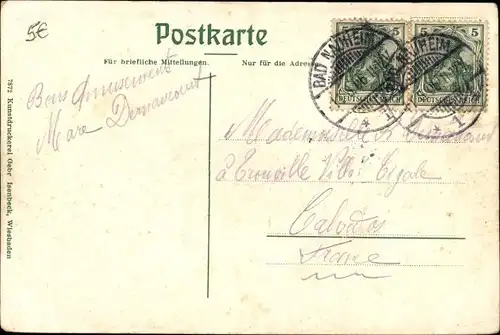 5€
Postkarte
Für briefliche Mitteilungen.
Nur für die Adres
7872 Kunstdruckerei Gebr Isenbeck, Wiesbaden
5
5
DEUTSCHES REICH
DEUTSCHES REICH
BAD NAUHEIM
NAUHEIM
* 1
* 1
Bons Amusements
Marc
Mademoiselle
à Trouville Villa Cigale
Calvados
France